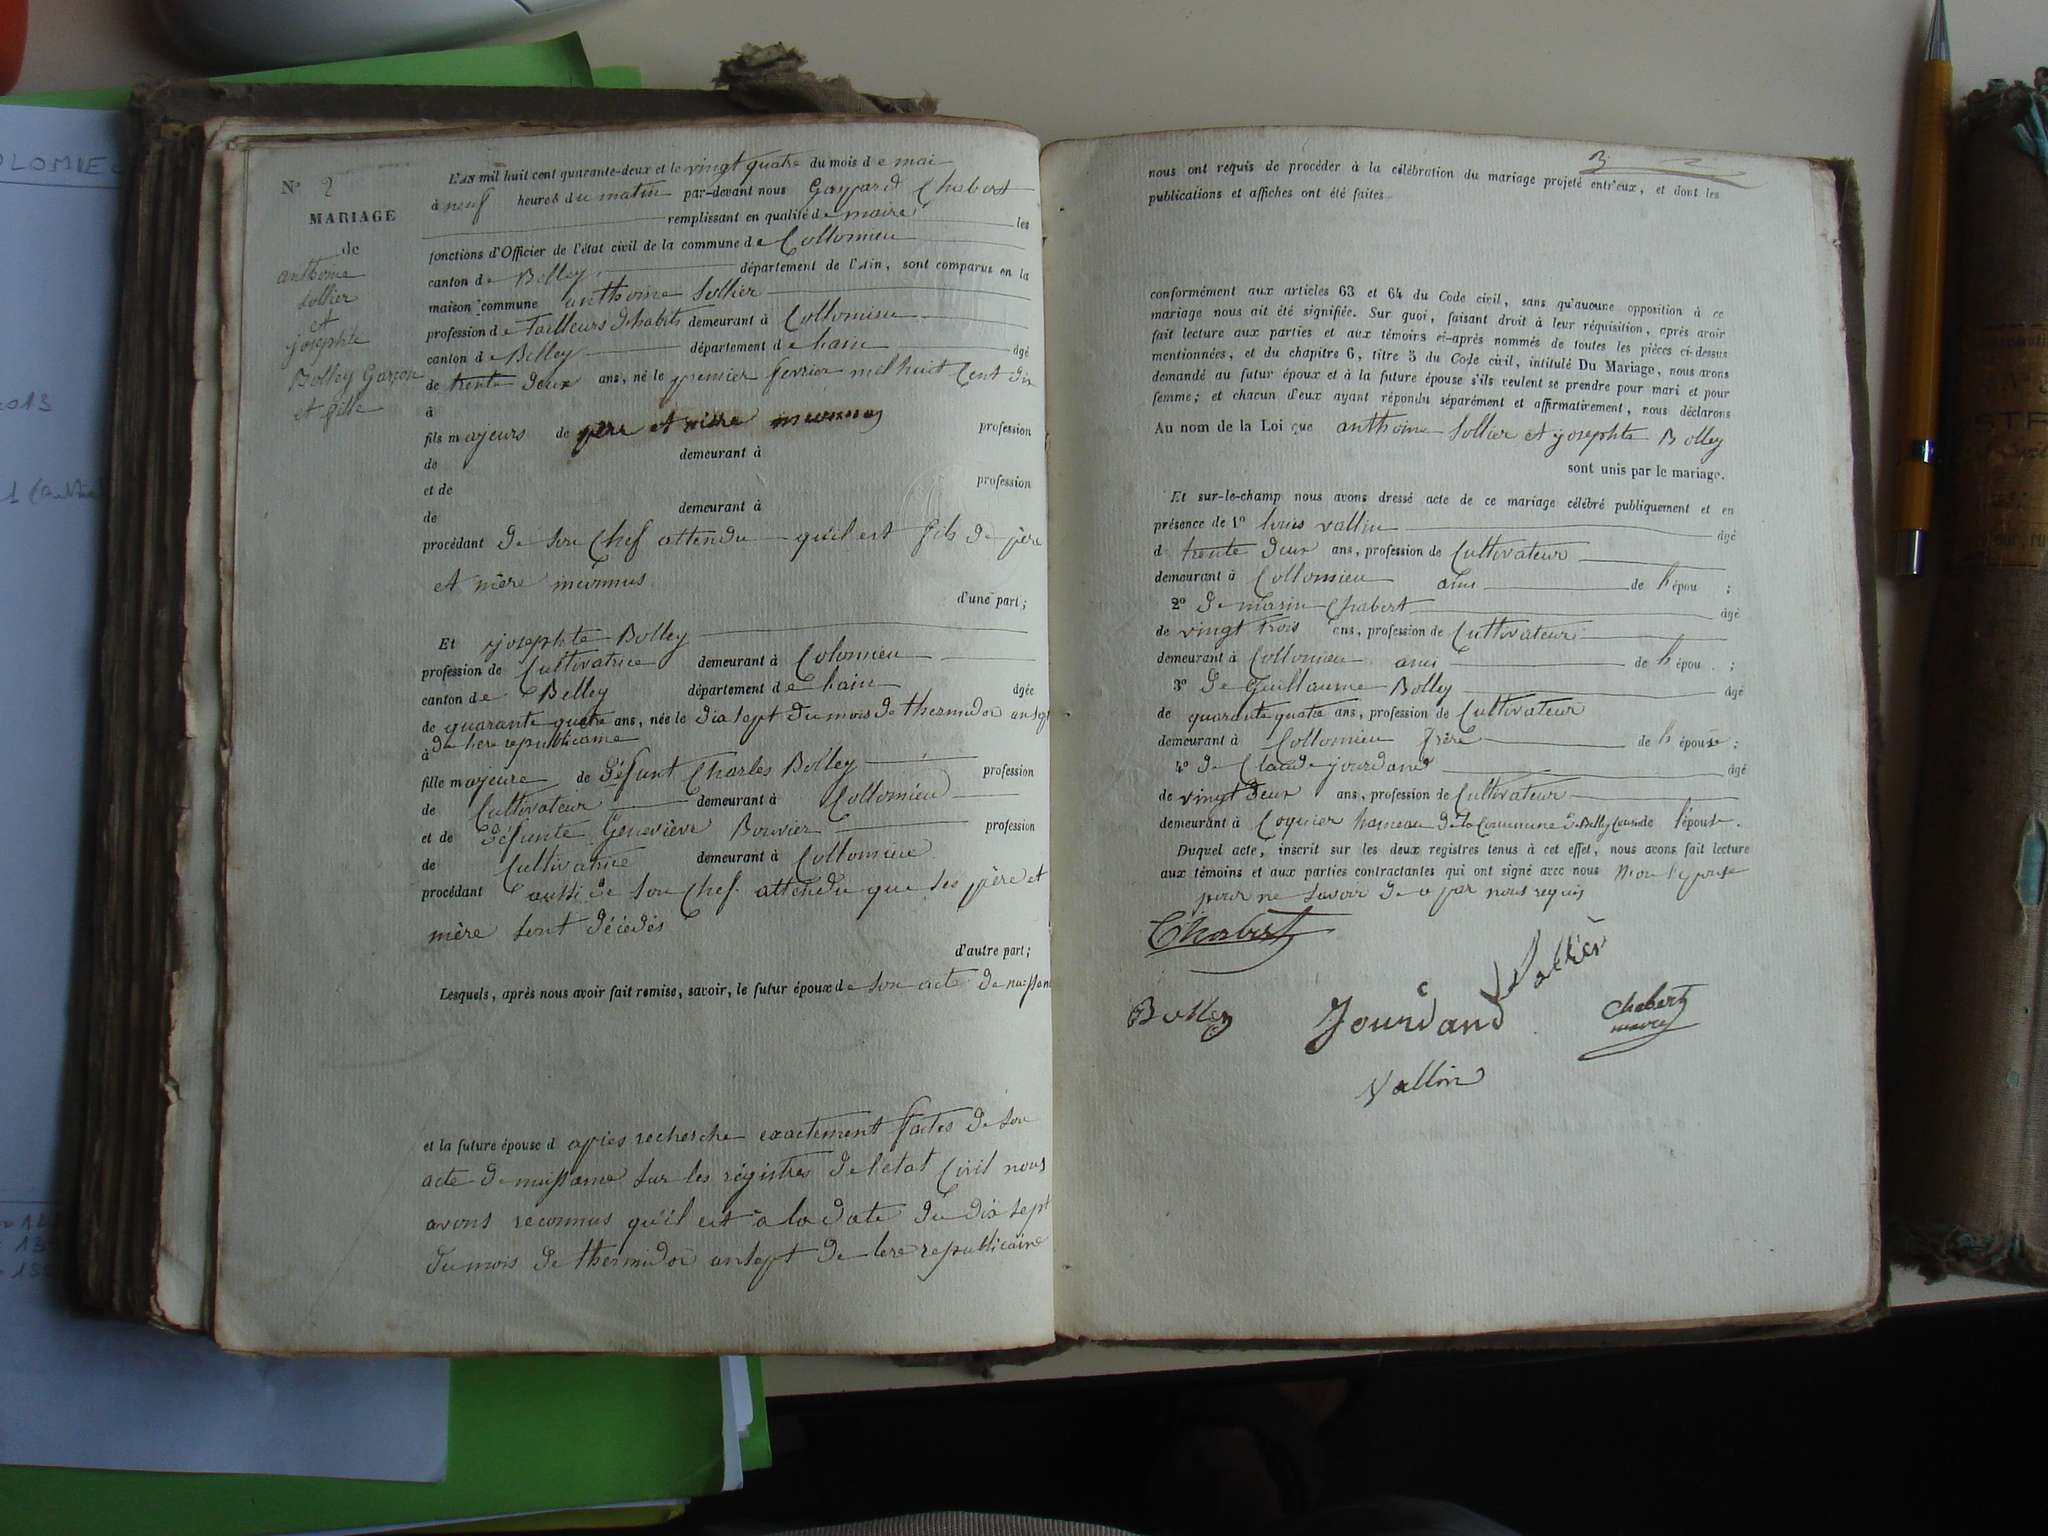 N° 2
MARIAGE
de
anthoine
Sollier
et
josephte
Bolley Garçon
et fille
L'AN mil huit cent quarante-deux et le vingt quatre du mois de mai
à neuf heures du matin par-devant nous Gaspard Chabert
remplissant en qualité de maire les
fonctions d'Officier de l'état civil de la commune de Collomieu
canton de Belley département de l'Ain, sont comparus en la
maison commune anthoine Sollier
profession de Tailleurs d'habits demeurant à Collomieu
canton de Belley département de hain âgé
de trente deux ans, né le premier fevrier mil huit Cent dix
à
fils majeurs de père et mère inconnus profession
de demeurant à
et de profession
de demeurant à
procédant de son Chef attendu qu'il est fils de père
et mère inconnus
d'une part;
Et josephte Bolley
profession de Cultivatrice demeurant à Colomieu
canton de Belley département de hain âgée
de quarante quatre ans, née le dix sept du mois de thermidor an sept
à de lere republicaine
fille majeure de défunt Charles Bolley profession
de Cultivateur demeurant à Collomieu
et de défunte Geneviève Bouvier profession
de Cultivatrice demeurant à Collomieu
procédant aussi de son Chef attendu que ses père et
mère sont décédés
d'autre part;
Lesquels, après nous avoir fait remise, savoir, le futur époux de son acte de naissance
et la future épouse d après recherche exactement faites de son
acte de naissance sur les régistres de l'état Civil nous
avons reconnus qu'il est à la date du dix sept
du mois de thermidor an sept de lere republicaine
3
nous ont requis de procéder à la célébration du mariage projeté entr'eux, et dont les
publications et affiches ont été faites
conformément aux articles 63 et 64 du Code civil, sans qu'aucune opposition à ce
mariage nous ait été signifiée. Sur quoi, faisant droit à leur réquisition, après avoir
fait lecture aux parties et aux témoins ci-après nommés de toutes les pièces ci-dessus
mentionnées, et du chapitre 6, titre 5 du Code civil, intitulé Du Mariage, nous avons
demandé au futur époux et à la future épouse s'ils veulent se prendre pour mari et pour
femme; et chacun d'eux ayant répondu séparément et affirmativement, nous déclarons
Au nom de la Loi que anthoine Sollier et josephte Bolley
sont unis par le mariage.
Et sur-le-champ nous avons dressé acte de ce mariage célébré publiquement et en
présence de 1° louis vallin âgé
d trente deux ans, profession de Cultivateur
demeurant à Collomieu ami de l'épou ;
2° de marin Chabert âgé
de vingt trois ans, profession de Cultivateur
demeurant à Collomieu ami de l'épou ;
3° de Guillaume Bolley âgé
de quarante quatre ans, profession de Cultivateur
demeurant à Collomieu frère de l'épouse ;
4° de Claude jourdand âgé
de vingt deux ans, profession de Cultivateur
demeurant à Coquier hameau de la Commune de Belley Cousin de l'épouse.
Duquel acte, inscrit sur les deux registres tenus à cet effet, nous avons fait lecture
aux témoins et aux parties contractantes qui ont signé avec nous non lépouse
pour ne savoir de ce par nous requis
Chabert
Sollier
Bolley Jourdand Chabert
Vallin